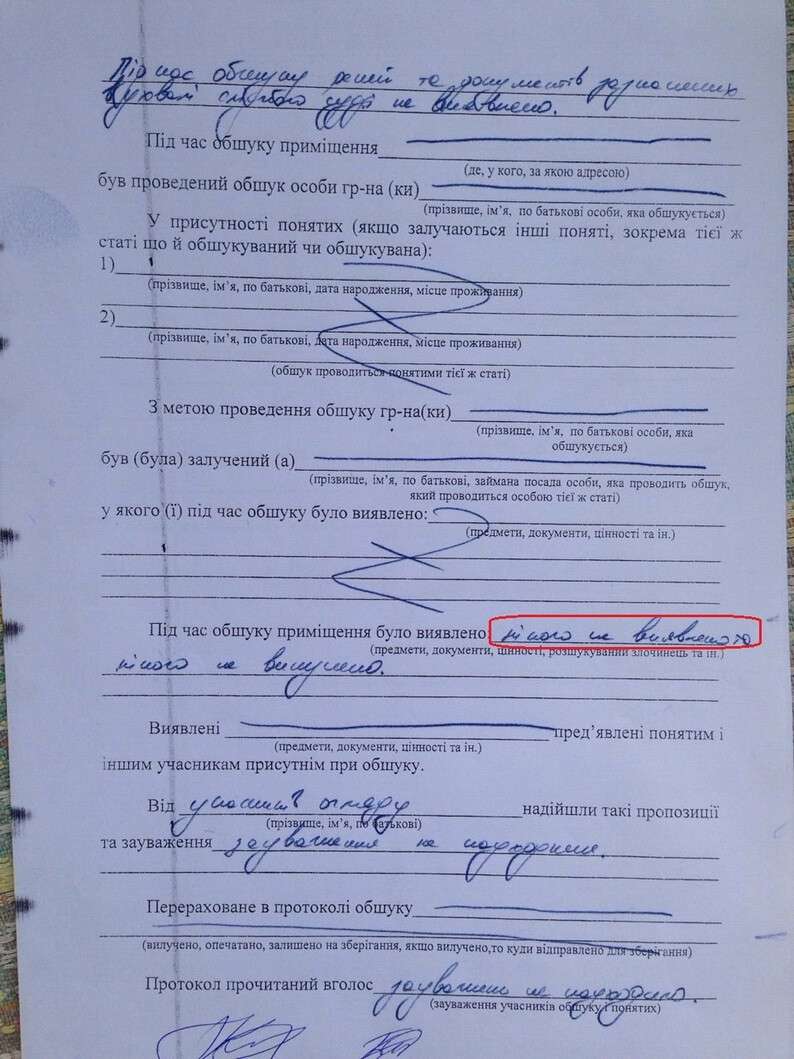 Під час обшуку речей та документів зазначених
в ухвалі слідчого судді не виявлено.
Під час обшуку приміщення
(де, у кого, за якою адресою)
був проведений обшук особи гр-на (ки)
(прізвище, ім’я, по батькові особи, яка обшукується)
У присутності понятих (якщо залучаються інші поняті, зокрема тієї ж
статі що й обшукуваний чи обшукувана):
1)
(прізвище, ім’я, по батькові, дата народження, місце проживання)
2)
(прізвище, ім’я, по батькові, дата народження, місце проживання)
(обшук проводиться понятими тієї ж статі)
З метою проведення обшуку гр-на(ки)
(прізвище, ім’я, по батькові особи, яка
обшукується)
був (була) залучений (а)
(прізвище, ім’я, по батькові, займана посада особи, яка проводить обшук,
який проводиться особою тієї ж статі)
у якого (ї) під час обшуку було виявлено:
(предмети, документи, цінності та ін.)
Під час обшуку приміщення було виявлено: нічого не виявлено та
(предмети, документи, цінності, розшукуваний злочинець та ін.)
нічого не вилучено.
Виявлені пред’явлені понятим і
(предмети, документи, цінності та ін.)
іншим учасникам присутнім при обшуку.
Від учасників огляду надійшли такі пропозиції
(прізвище, ім’я, по батькові)
та зауваження зауваження не надходили.
Перераховане в протоколі обшуку
(вилучено, опечатано, залишено на зберігання, якщо вилучено,то куди відправлено для зберігання)
Протокол прочитаний вголос зауважень не надходило.
(зауваження учасників обшуку і понятих)